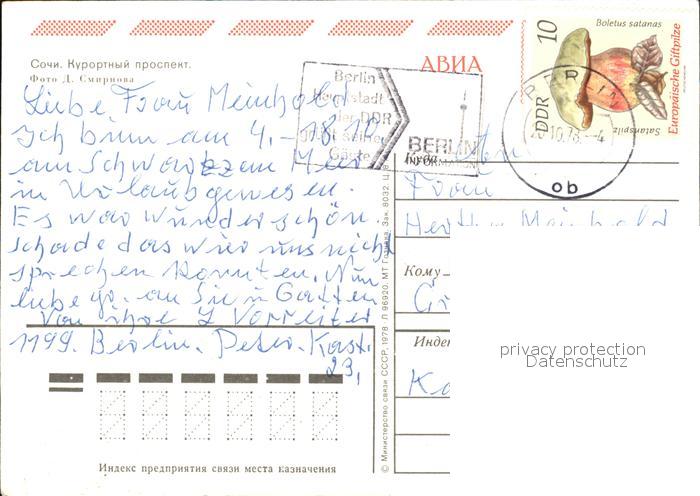 Сочи. Курортный проспект.
Фото Д. Смирнова
АВИА
Boletus satanas
10
DDR
Satanspilz
Europäische Giftpilze
Berlin
Hauptstadt
der DDR
grüßt seine
Gäste
BERLIN
INFORMATION
BERLIN
10.78.-4
ob
Liebe Frau Meinhold
Ich binn am 4.-18.10
am Schwarzem Meer
in Urlaub gewesen.
Es war wunderschön.
schade das wier uns nicht
sprechen konnten. Nun
liebe Gr. an Sie u Gatten
Von ihre L Vorreiter
1199. Berlin. Peter-Kast.
23,
Куда
An
Frau
Hertha Meinhold
Кому
Индек
Ka
privacy protection
Datenschutz
Индекс предприятия связи места назначения
© Министерство связи СССР, 1978 Л 96920. МТ Гознака. Зак. 8032. Ц.